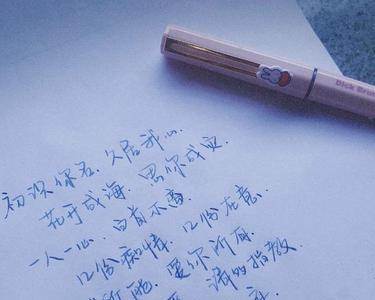 Dick Brun
初识你名.久居我心.
花开成海.思你成灾.
一人一心.白首不离.
12份痴情.12份在意.
所能.爱你所有.
请多指教.